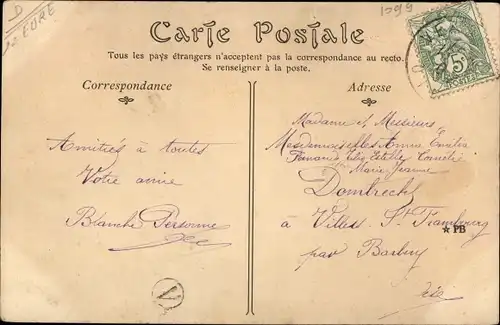 D
EURE
1299
Carte Postale
Tous les pays étrangers n'acceptent pas la correspondance au recto.
Se renseigner à la poste.
Correspondance
Adresse
5
POSTES
Amitiés à toutes
Votre amie
Blanche Personne
Madame et Messieurs
Mesdemoiselles Anna Emilia
Estelle Cornélie
Marie Jeanne
Dombrecht
à Villers St Frambourg
★ PB
par Barbery
Oise
V